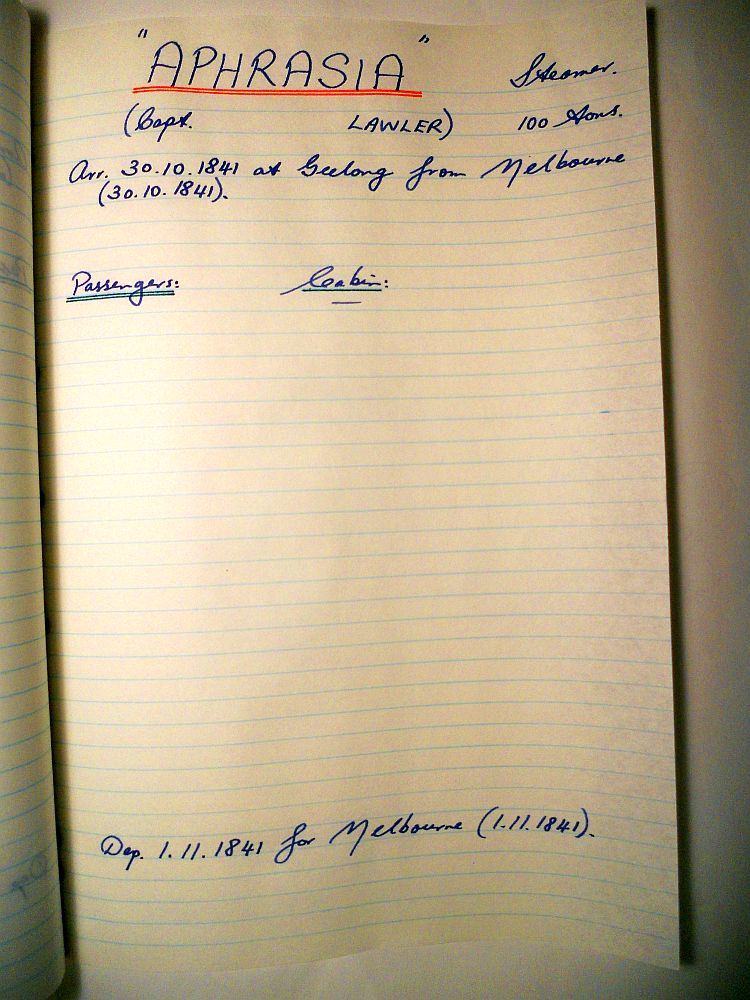 "APHRASIA" Steamer.
(Capt. LAWLER) 100 Tons.
Arr. 30.10.1841 at Geelong from Melbourne
(30.10.1841).
Passengers: Cabin:
—
Dep. 1.11.1841 for Melbourne (1.11.1841).